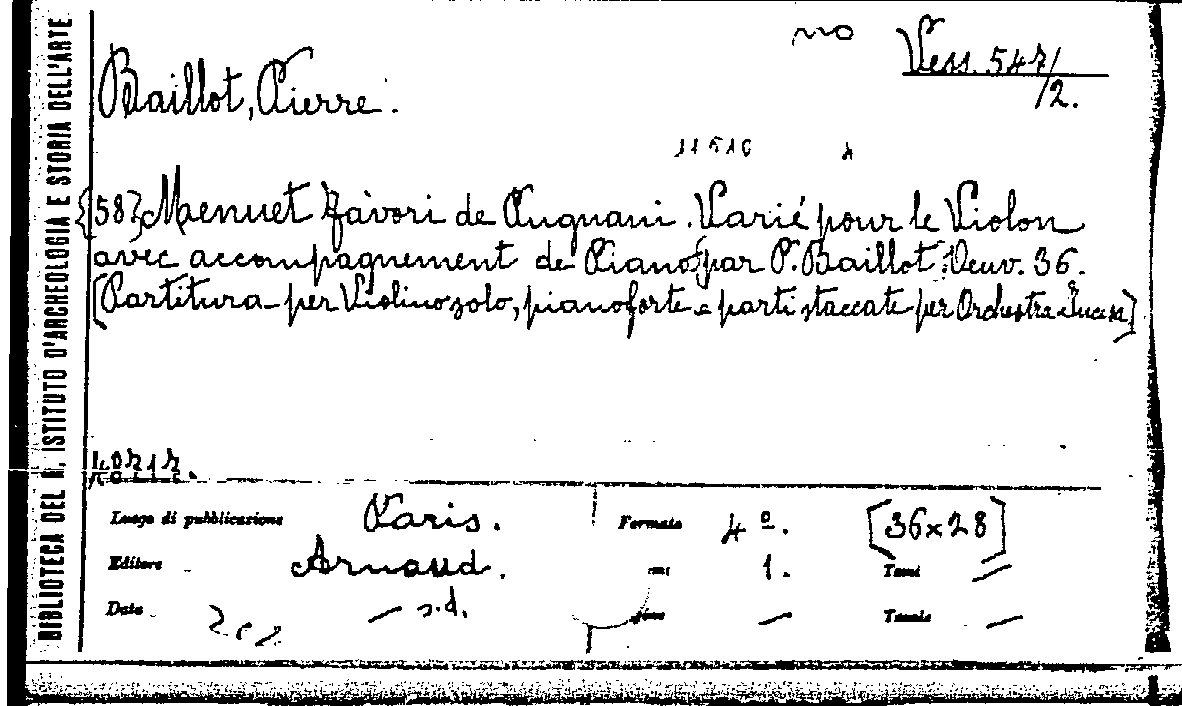 BIBLIOTECA DEL R. ISTITUTO D'ARCHEOLOGIA E STORIA DELL'ARTE
no
Vess. 547/2.
Baillot, Pierre.
11510
{58} Menuet favori de Pugnani. Varié pour le Violon
avec accompagnement de Piano par P. Baillot. Oeuv. 36.
[Partitura per Violino solo, pianoforte e parti staccate per Orchestra
Luogo di pubblicazione Paris. Formato 4º. [36x28]
Editore Arnaud. 1. Tomi —
Data — s.d. — Tavole —